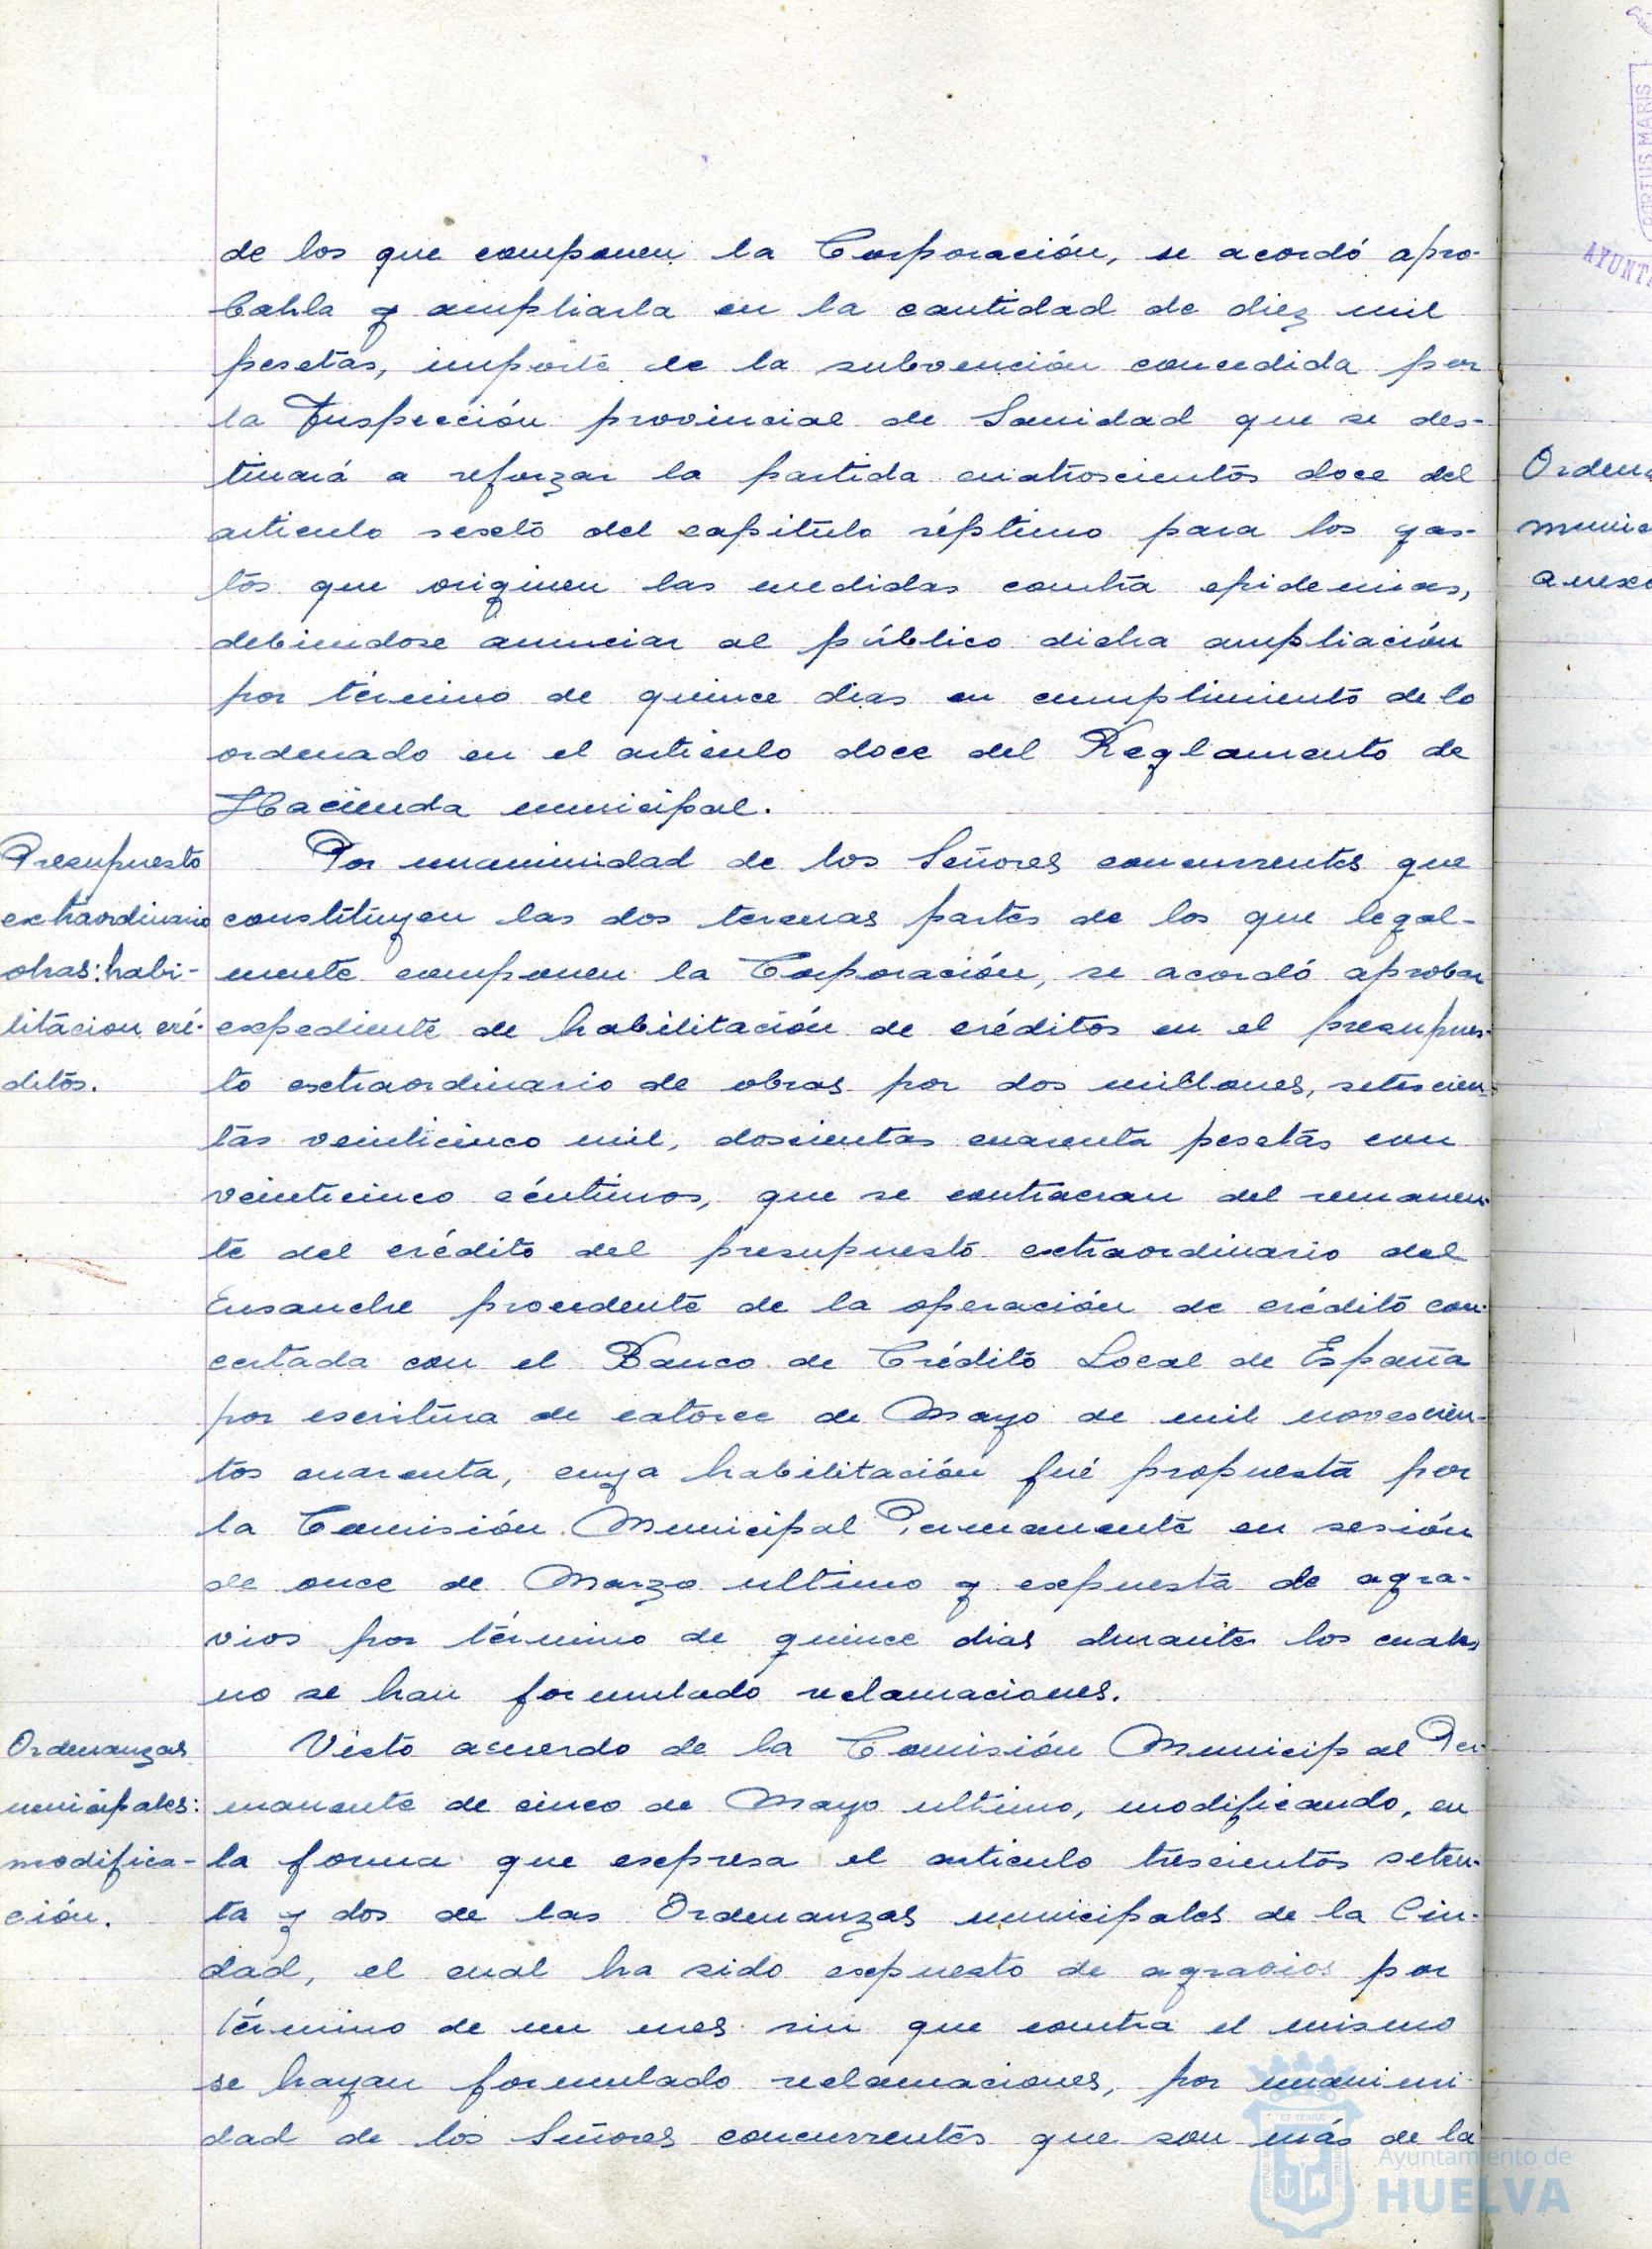 de los que componen la Corporación, se acordó apro-
barla y ampliarla en la cantidad de diez mil
pesetas, importe de la subvención concedida por
la Inspección provincial de Sanidad que se des-
tinará a reforzar la partida cuatroscientos doce del
articulo sexto del capitulo séptimo para los gas-
tos que originen las medidas contra epidemias,
debiendose anunciar al público dicha ampliación
por término de quince dias en cumplimiento de lo
ordenado en el articulo doce del Reglamento de
Hacienda municipal.
Presupuesto
extraordinario
obras: habi-
litacion cré-
ditos.
Por unanimidad de los Señores concurrentes que
constituyen las dos terceras partes de los que legal-
mente componen la Corporación, se acordó aprobar
expediente de habilitación de créditos en el presupues-
to extraordinario de obras por dos millones, setescien-
tas veinticinco mil, doscientas cuarenta pesetas con
veinticinco céntimos, que se contraeran del remanen-
te del crédito del presupuesto extraordinario del
Ensanche procedente de la operación de crédito con-
certada con el Banco de Crédito Local de España
por escritura de catorce de Mayo de mil novescien-
tos cuarenta, cuya habilitación fué propuesta por
la Comisión Municipal Permanente en sesión
de once de Marzo ultimo y expuesta de agra-
vios por término de quince dias durante los cuales
no se han formulado reclamaciones.
Ordenanzas
municipales:
modifica-
ción.
Visto acuerdo de la Comisión Municipal Per-
manente de cinco de Mayo ultimo, modificando, en
la forma que expresa el articulo trescientos seten-
ta y dos de las Ordenanzas municipales de la Ciu-
dad, el cual ha sido expuesto de agravios por
término de un mes sin que contra el mismo
se hayan formulado reclamaciones, por unanimi
dad de los Señores concurrentes que son más de la
Ayuntamiento de
HUELVA